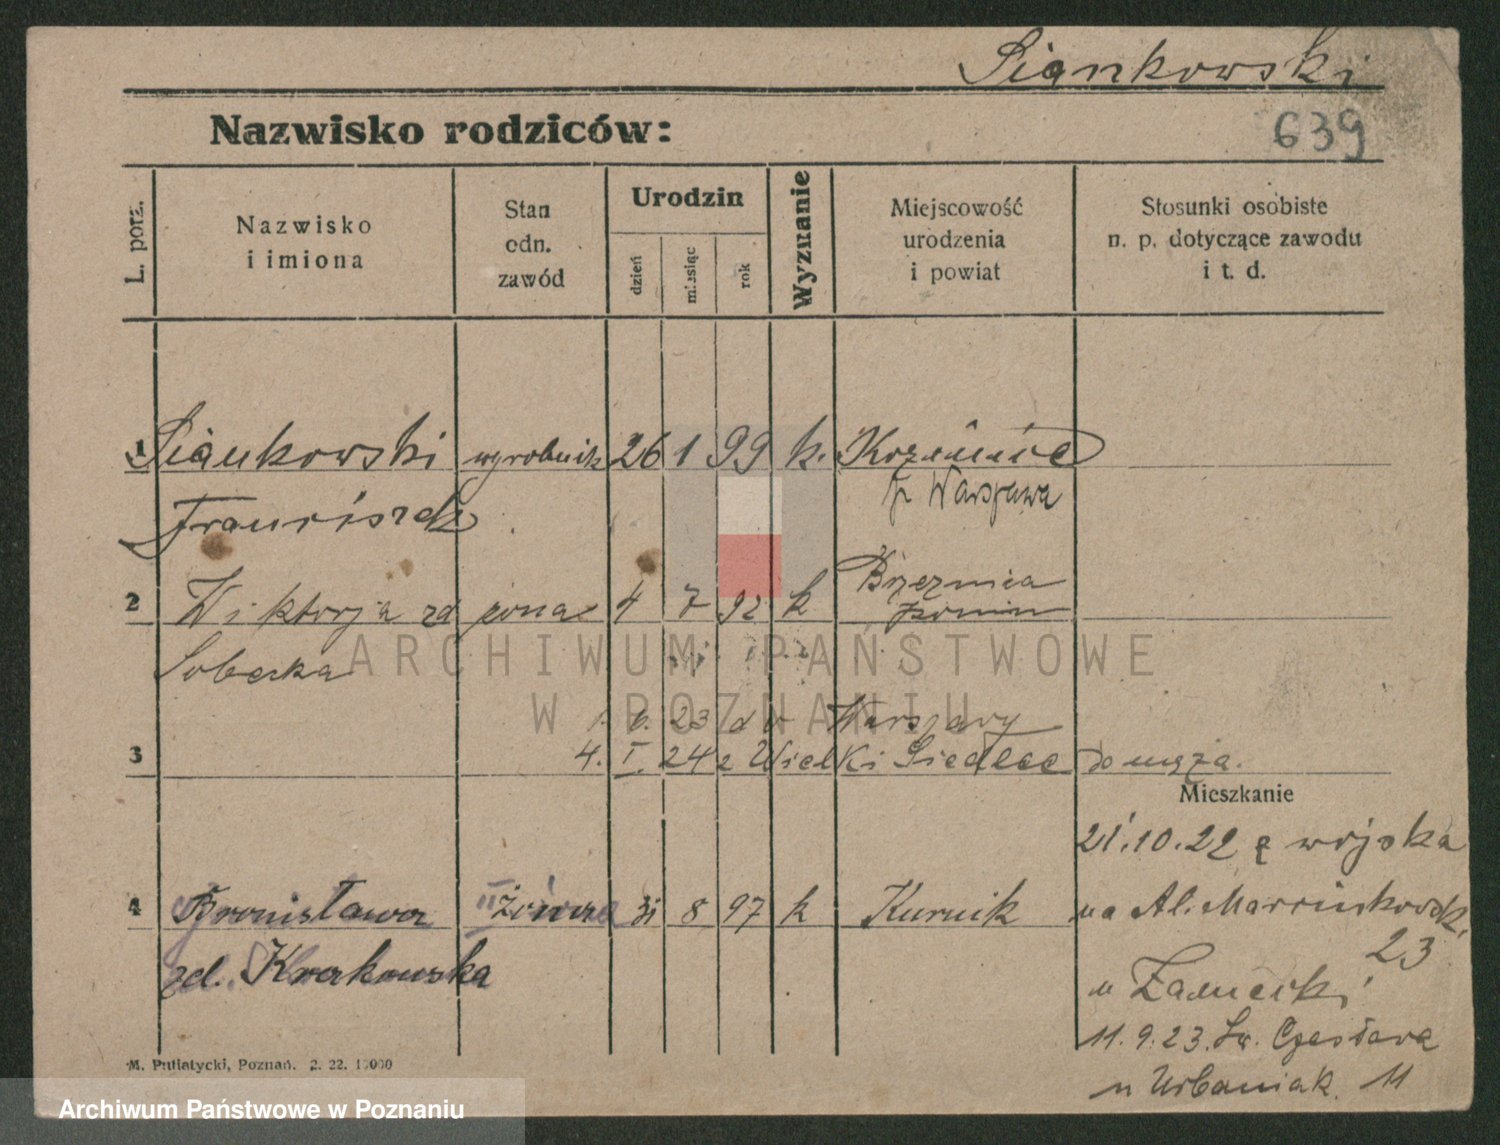 Piankowski
Nazwisko rodziców:
639
L. porz.
Nazwisko
i imiona
Stan
odn.
zawód
Urodzin
dzień
miesiąc
rok
Wyznanie
Miejscowość
urodzenia
i powiat
Stosunki osobiste
n. p. dotyczące zawodu
i t. d.
1 Piankowski wyrobnik 26 1 99 k. Kozienice
p Warszawa
Franciszek
Brzeźnica
2 Wiktorja zd żona 4 7 92 k
Soberka
ARCHIWUM PAŃSTWOWE
W POZNANIU
1. 6. 23 do Warszawy
3 4. I. 24 z Wielki Siedlec do męża.
Mieszkanie
21.10.22 z wojska
4 Bronisława II żona 31 8 97 k Kurnik na Al. Marcinkowsk.
23
zd. Krakowska
u Zamecki
11.9.23. Św. Czesława
u Urbaniak. 11
M. Putiatycki, Poznań. 2. 22. 10000
Archiwum Państwowe w Poznaniu